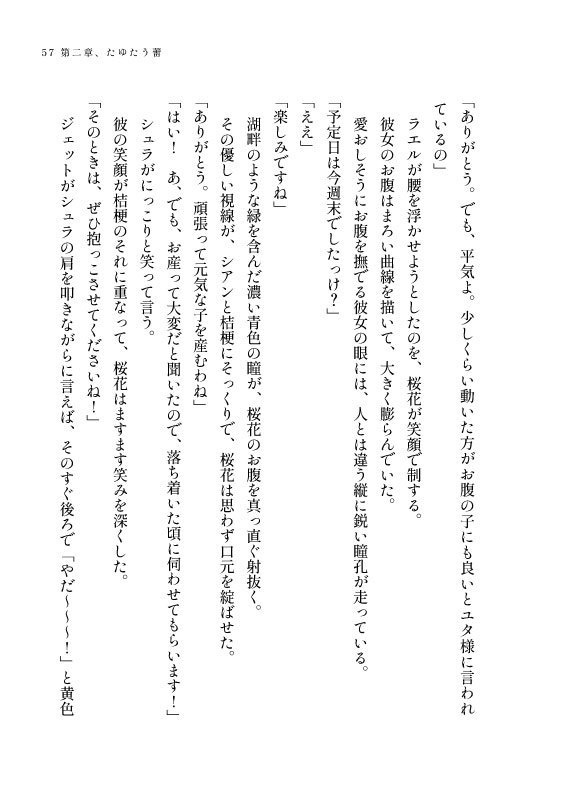 57 第二章、たゆたう蕾
「ありがとう。でも、平気よ。少しくらい動いた方がお腹の子にも良いとユタ様に言われ
ているの」
ラエルが腰を浮かせようとしたのを、桜花が笑顔で制する。
彼女のお腹はまろい曲線を描いて、大きく膨らんでいた。
愛おしそうにお腹を撫でる彼女の眼には、人とは違う縦に鋭い瞳孔が走っている。
「予定日は今週末でしたっけ?」
「ええ」
「楽しみですね」
湖畔のような緑を含んだ濃い青色の瞳が、桜花のお腹を真っ直ぐ射抜く。
その優しい視線が、シアンと桔梗にそっくりで、桜花は思わず口元を綻ばせた。
「ありがとう。頑張って元気な子を産むわね」
「はい! あ、でも、お産って大変だと聞いたので、落ち着いた頃に伺わせてもらいます!」
シュラがにっこりと笑って言う。
彼の笑顔が桔梗のそれに重なって、桜花はますます笑みを深くした。
「そのときは、ぜひ抱っこさせてくださいね!」
ジェットがシュラの肩を叩きながらに言えば、そのすぐ後ろで「やだ~~~!」と黄色